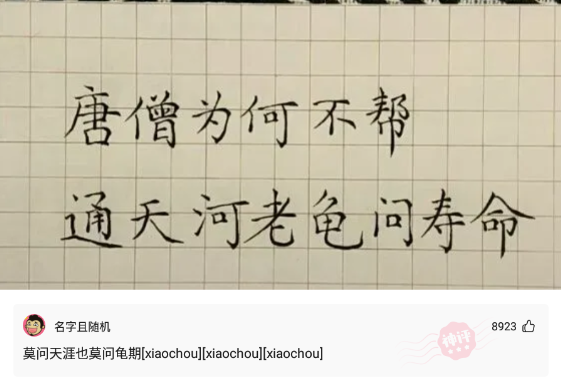 唐僧为何不帮
通天河老龟问寿命
名字且随机
8923
神评
莫问天涯也莫问龟期[xiaochou][xiaochou][xiaochou]